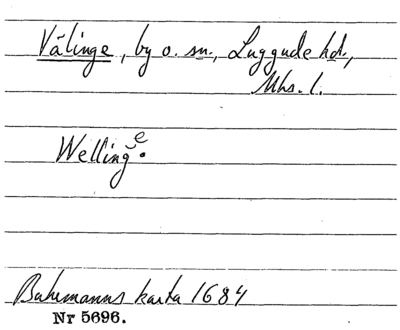 Välinge, by o. sn., Luggude hd.,
Mhs. l.
Welling^e.
Buhrmanns karta 1684
Nr 5696.